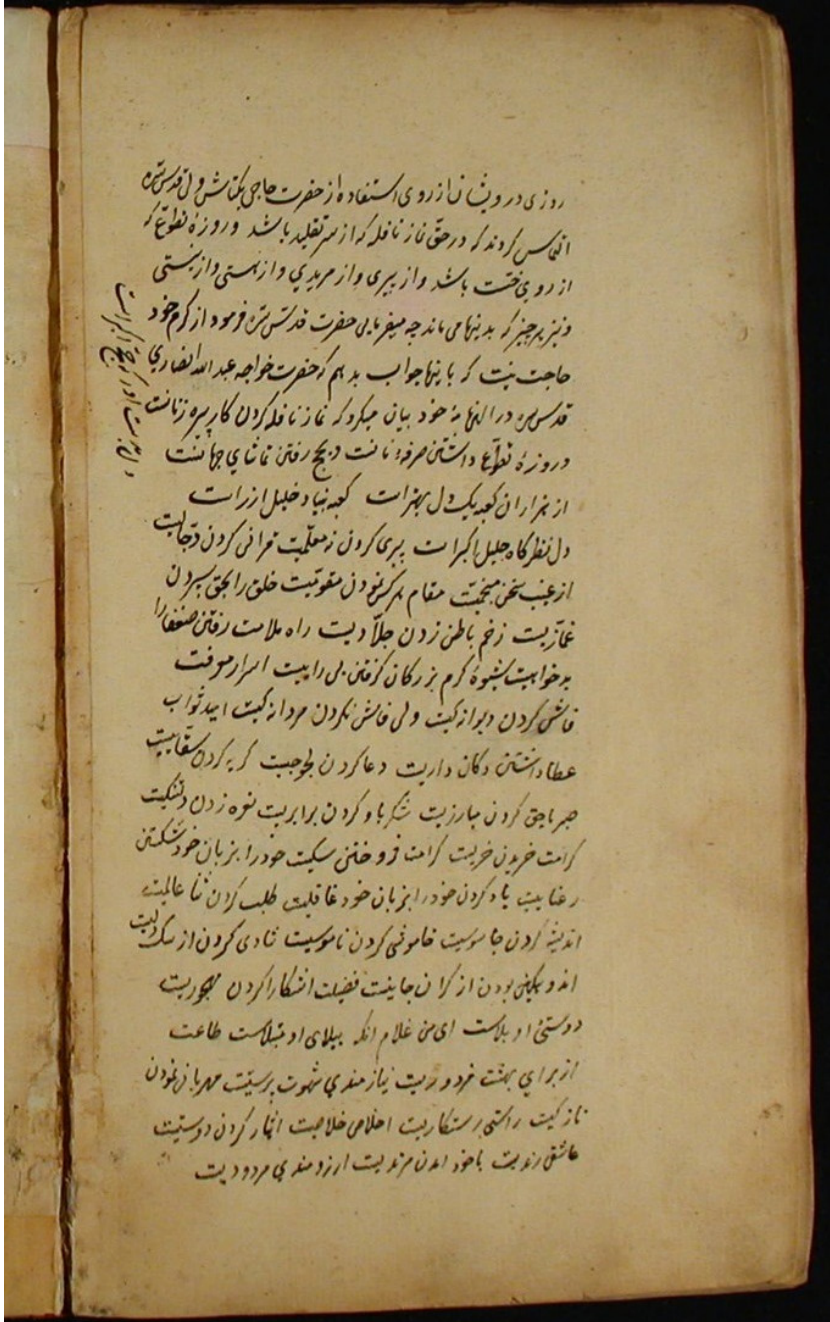 روزی درویشان از روی استفاده از حضرت حاجی بکتاش ولی قدس سره
التماس کردند که در حق نماز نافله که از سر تقلید باشد و روزهٔ تطوّع که
از روی باشد و از پیری و از مریدی و از هستی و از نیستی
و نیز هر چیز که بدینها می ماند چه میفرمایی حضرت قدس سره فرمود از کرم خود
حاجت نیست که باینها جواب بدهم که حضرت خواجه عبد الله انصاری
قدس سره در الهی نامهٔ خود بیان میکرد که نماز نافله کردن کار پیره زنانست
و روزهٔ تطوّع داشتن صرفهٔ نانست و بحج رفتن تماشای جهانست
از هزاران کعبه یک دل بهترست کعبه بنیاد خلیل ازرست
دل نظرگاه جلیل اکبرست پیری کردن زمعلّمیت قرائی کردن دجّالیت
از غیب سخن منجّمیت مقام هر کس نمودن مقومیت خلق را بحق سپردن
غمّازیت زخم باطن زدن جلاّدیت راه ملامت رفتن ضعفا را
کرم بزرگان گرفتن بی راهیت اسرار معرفت
فاش کردن دیوانگیت ولی فاش نکردن مردانگیت امید ثواب
عطا داشتن دکان داریت دعا کردن بوالعجبیت گریه کردن سقّاییت
صبر با حق کردن مبارزیت شکر باو کردن برابریت نعره زدن دلتنگیت
کرامت خریدن خریت کرامت فروختن سگیت خود را بزبان خود شکستن
رعناییت یاد کردن خود را بزبان خود غافلیت طلب کردن
اندیشه کردن جاسوسیت خاموشی کردن ناموسیت شادی کردن از سبک دلیت
اندوهگین بودن از گران جانیت فضیلت آشکارا کردن مهجوریت
دوستئ او بلاست ای من غلام آنکه ببلای او مبتلاست طاعت
از برای بهشت مزدوریت نیازمندی شهوت پرستیت مهربان نمودن
نازکیت راستی رستکاریت اخلاص خلاصیت ایثار کردن دوستیت
عاشقی رندیت باخود آمدن مرتدیت آرزومندی مردودیت
دل بدست آور که حج اکبرست